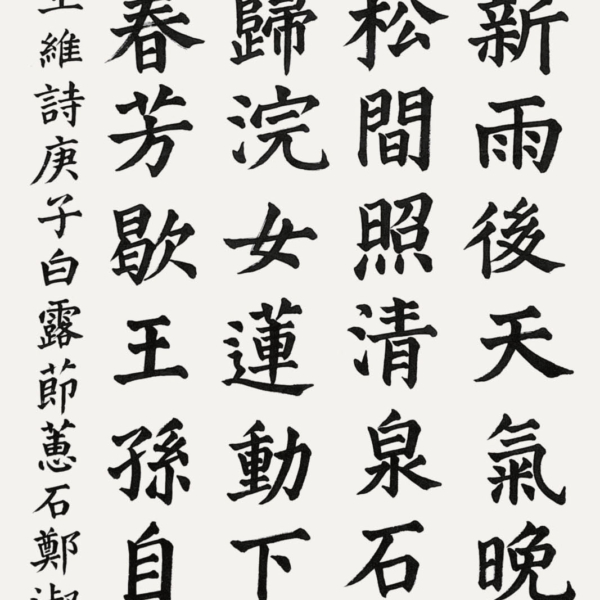 新雨後天氣晚
松間照清泉石
歸浣女蓮動下
春芳歇王孫自
王維詩庚子白露節蕙石鄭淑